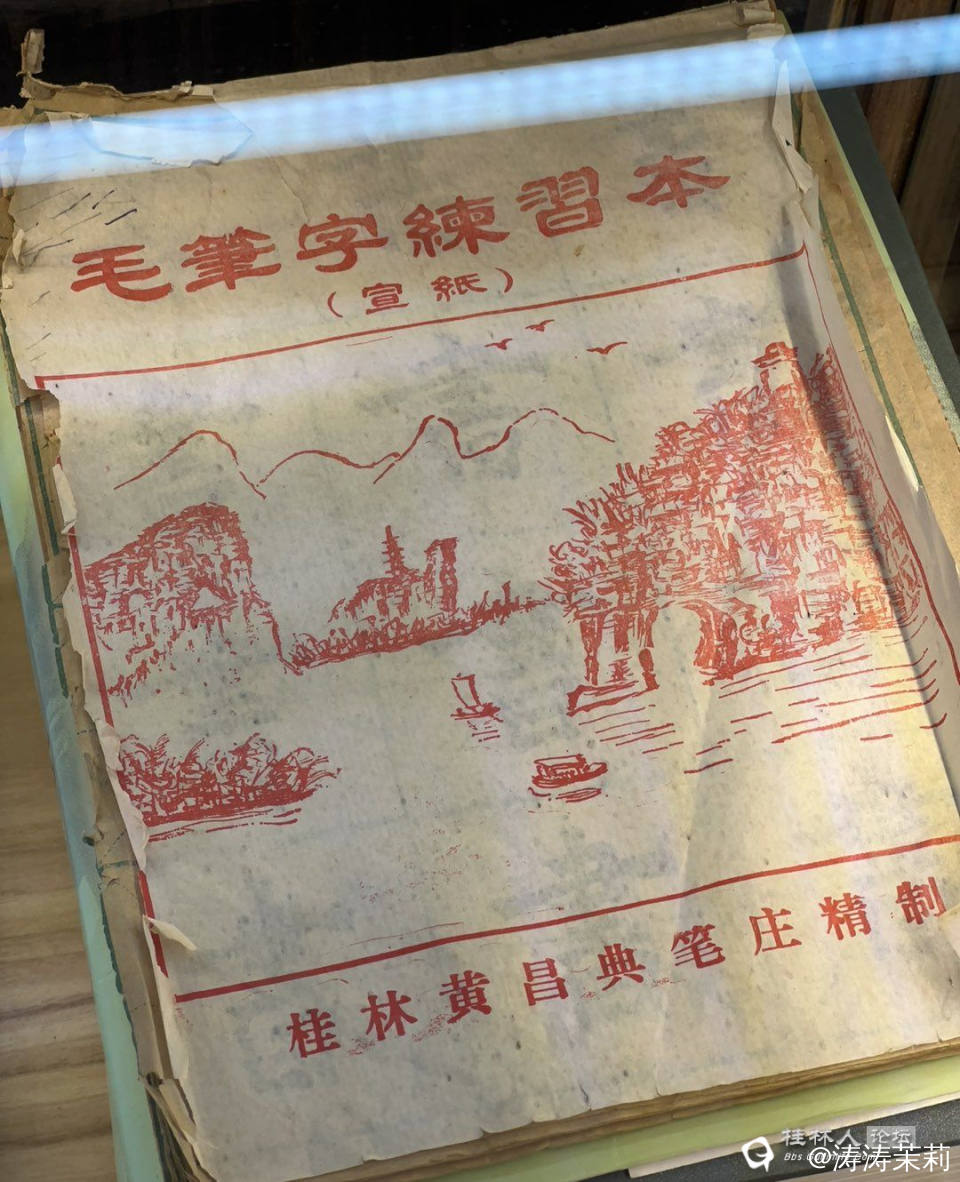 毛筆字練習本
（宣紙）
桂林黄昌典笔庄精制
桂林人 论坛
@涛涛茉莉